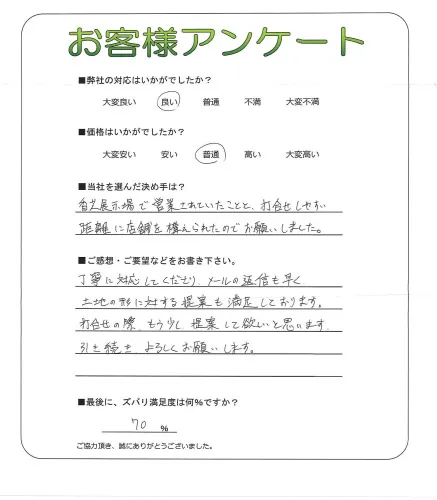 お客様アンケート
■弊社の対応はいかがでしたか？
大変良い 良い 普通 不満 大変不満
■価格はいかがでしたか？
大変安い 安い 普通 高い 大変高い
■当社を選んだ決め手は？
展示場で営業されていたことと、打合せしやすい
距離に店舗を構えられたのでお願いしました。
■ご感想・ご要望などをお書き下さい。
丁寧に対応してくださり、メールの返信も早く
土地の形に対する提案も満足しております。
打合せの際、もう少し提案して欲しいと思います。
引き続き、よろしくお願いします。
■最後に、ズバリ満足度は何％ですか？
70 ％
ご協力頂き、誠にありがとうございました。